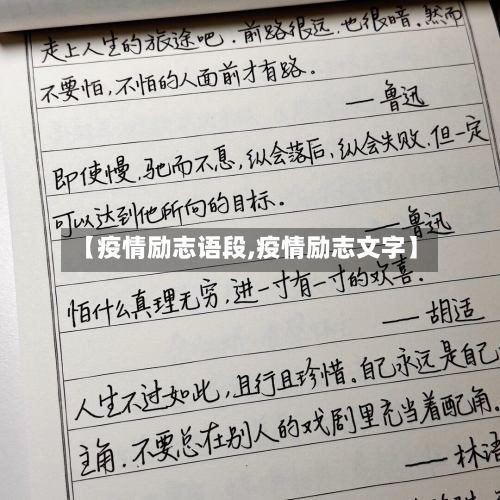 走上人生的旅途吧.前路很远,也很暗.然而
不要怕,不怕的人面前才有路。
——鲁迅
即使慢,驰而不息,纵会落后,纵会失败.但一定
可以达到他所向的目标。
——鲁迅
【疫情励志语段,疫情励志文字】
怕什么真理无穷,进一寸有一寸的欢喜.
——胡适
人生不过如此,且行且珍惜。自己永远是自己
主角.不要总在别人的戏剧里充当着配角.
——林语